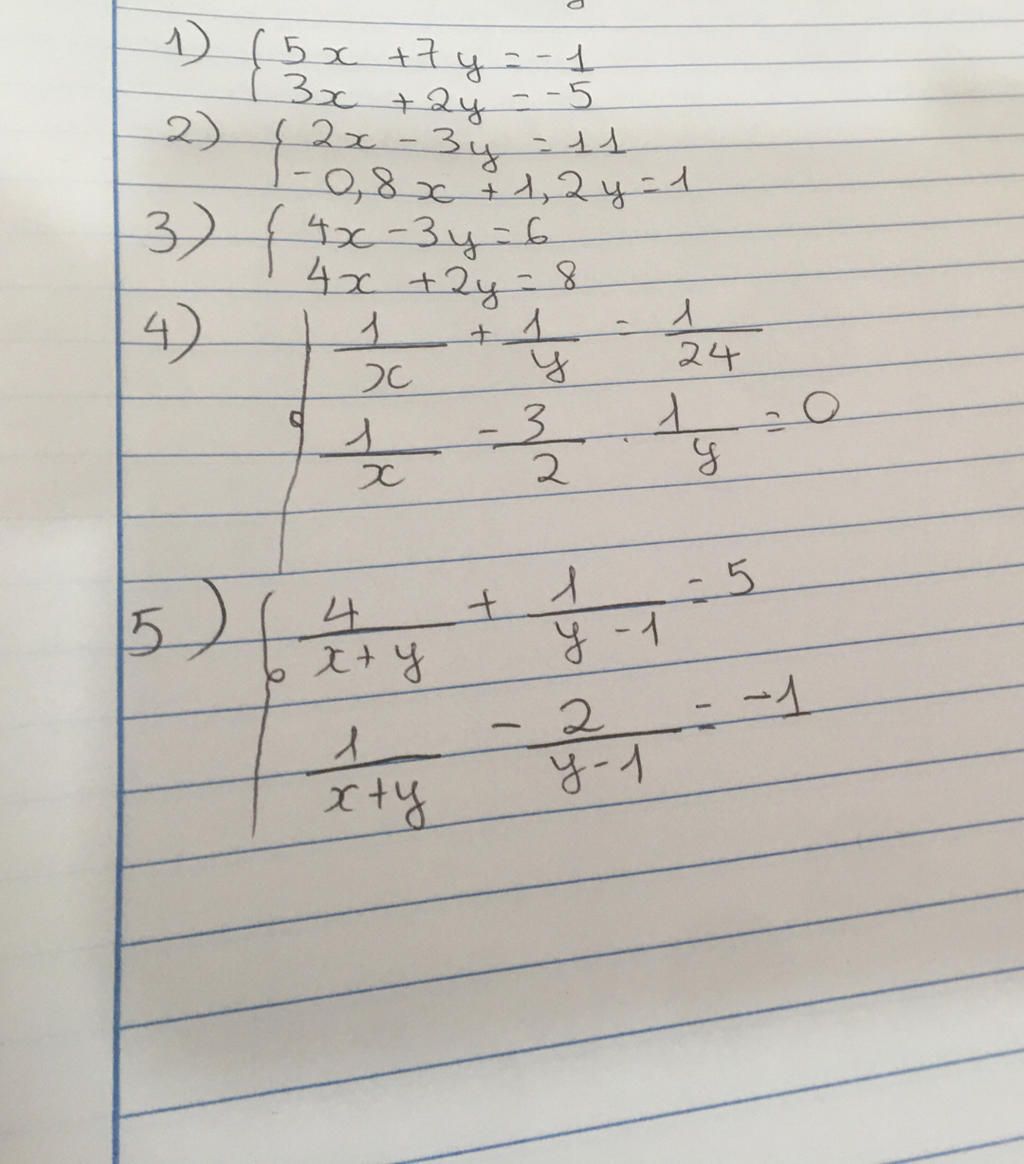 1) { 5x + 7y = -1
3x + 2y = -5
2) { 2x - 3y = 11
-0,8x + 1,2y = 1
3) { 4x - 3y = 6
4x + 2y = 8
4) { 1/x + 1/y = 1/24
1/x - 3/2 . 1/y = 0
5) { 4/(x+y) + 1/(y-1) = 5
1/(x+y) - 2/(y-1) = -1